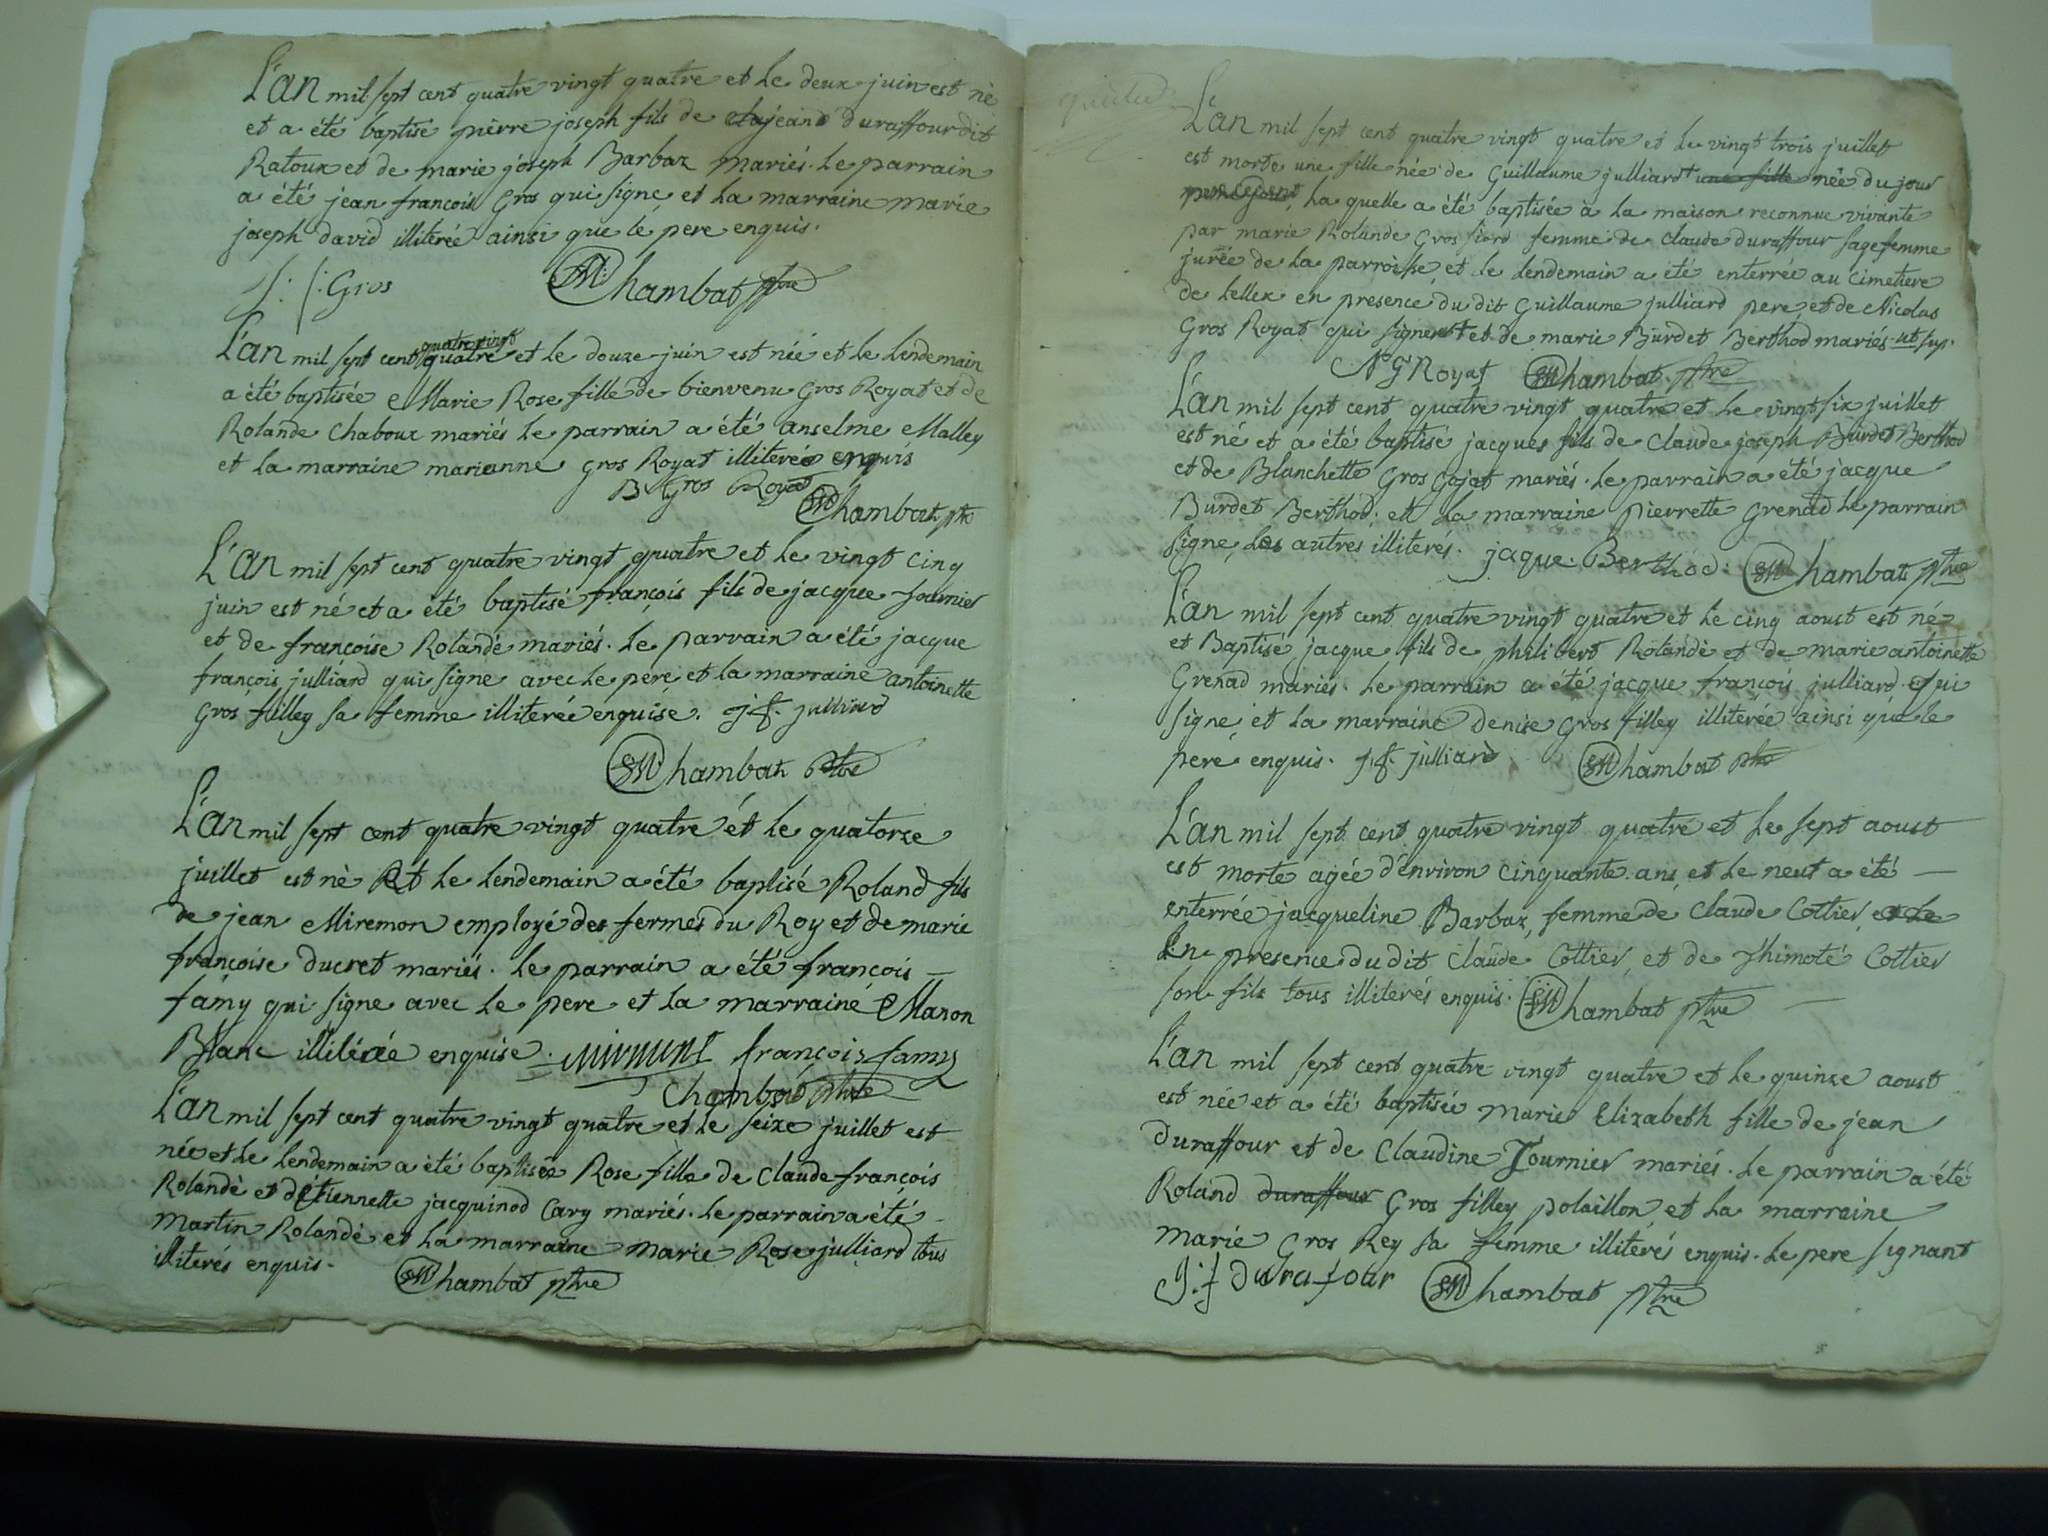 L'an mil sept cent quatre vingt quatre et le deux juin est né
et a été baptisé pierre joseph fils de jean duraffour dit
Ratoux et de marie joseph Barbaz mariés. le parrain
a été jean francois Gros qui signe et la marraine marie
joseph david illiterée ainsi que le pere enquis.
j: f: Gros SM Chambat ptre
L'an mil sept cent quatre vingt quatre et le douze juin est née et le lendemain
a été baptisée Marie Rose fille de bienvenu Gros Royat et de
Rolande Chaboux mariés le parrain a été anselme Malley
et la marraine marianne gros Royat illiterée enquis
B Gros Royat
SM Chambat ptre
L'an mil sept cent quatre vingt quatre et le vingt cinq
juin est né et a été baptisé françois fils de jacque fournier
et de françoise Rolandé mariés. le parrain a été jacque
françois julliard qui signe avec le pere et la marraine antoinette
Gros filley sa femme illiterée enquise. j.f. julliard
SM Chambat ptre
L'an mil sept cent quatre vingt quatre et le quatorze
juillet est né Et le lendemain a été baptisé Roland fils
de jean Miremon employé des fermes du Roy et de marie
françoise ducret mariés. le parrain a été françois
famy qui signe avec le pere et la marraine Manon
Blanc illiterée enquise. Mirmont françois famy
Chambat ptre
L'an mil sept cent quatre vingt quatre et le seize juillet est
née et le lendemain a été baptisée Rose fille de Claude françois
Rolandé et d'Etiennette jacquinod Cary mariés. le parrain a été
Martin Rolandé et la marraine Marie Rose julliard tous
illiterés enquis.
SM Chambat ptre
L'an mil sept cent quatre vingt quatre et le vingt trois juillet
est morte une fille née de Guillaume julliard une fille née du jour
la quelle a été baptisée à la maison reconnue vivante
par marie Rolande Gros femme de claude duraffour sagefemme
jurée de la parroisse, et le lendemain a été enterrée au cimetiere
de Lellex en presence du dit Guillaume julliard pere et de Nicolas
Gros Royat qui signent et de marie Burdet Berthod mariés ut sup.
N G Royat SM Chambat ptre
L'an mil sept cent quatre vingt quatre et le vingt six juillet
est né et a été baptisé jacques fils de Claude joseph Burdet Berthod
et de Blanchette Gros Gojat mariés. le parrain a été jacque
Burdet Berthod. et la marraine pierrette Grenad le parrain
signe, les autres illiterés. jaque. Berthod. SM Chambat ptre
L'an mil sept cent quatre vingt quatre et le cinq aoust est né
et Baptisé jacque fils de philibert Rolandé et de marie antoinette
Grenad mariés. le parrain a été jacque françois julliard. qui
signe, et la marraine denise Gros filley illiterée ainsi que le
pere enquis. j.f. julliard SM Chambat ptre
L'an mil sept cent quatre vingt quatre et le sept aoust
est morte agée d'environ cinquante ans, et le neuf a été
enterrée jacqueline Barbaz, femme de Claude Cottier, et le
En presence du dit Claude Cottier, et de Thimoté Cottier
son fils tous illiterés enquis. SM Chambat ptre
L'an mil sept cent quatre vingt quatre et le quinze aoust
est née et a été baptisée Marie Elizabeth fille de jean
duraffour et de Claudine Tournier mariés. le parrain a été
Roland duraffour Gros filley polaillon, et la marraine
marie Gros Rey sa femme illiterés enquis. le pere signant
J:f durafour SM Chambat ptre